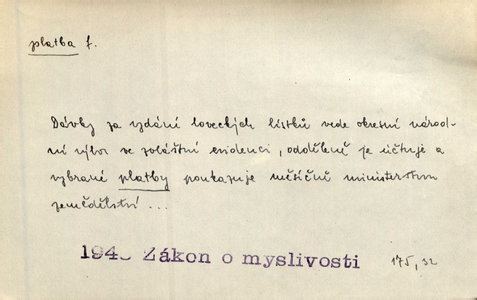 platba f.
Dávky za vydání loveckých lístků vede okresní národ-
ní výbor ve zvláštní evidenci, odděleně je účtuje a
vybrané platby poukazuje měsíčně ministerstvu
zemědělství ...
Zákon o myslivosti 175, 32